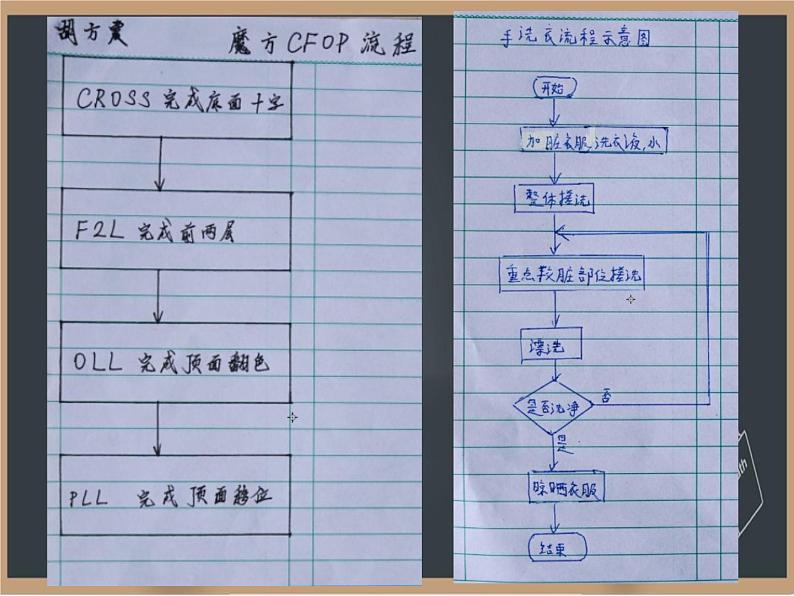 胡方震
魔方CFOP流程
CROSS 完成底面十字
F2L 完成前两层
OLL 完成顶面翻色
PLL 完成顶面移位
手洗衣流程示意图
开始
加脏衣服,洗衣液,水
整体搓洗
重点较脏部位搓洗
漂洗
是否洗净
否
是
晾晒衣服
结束